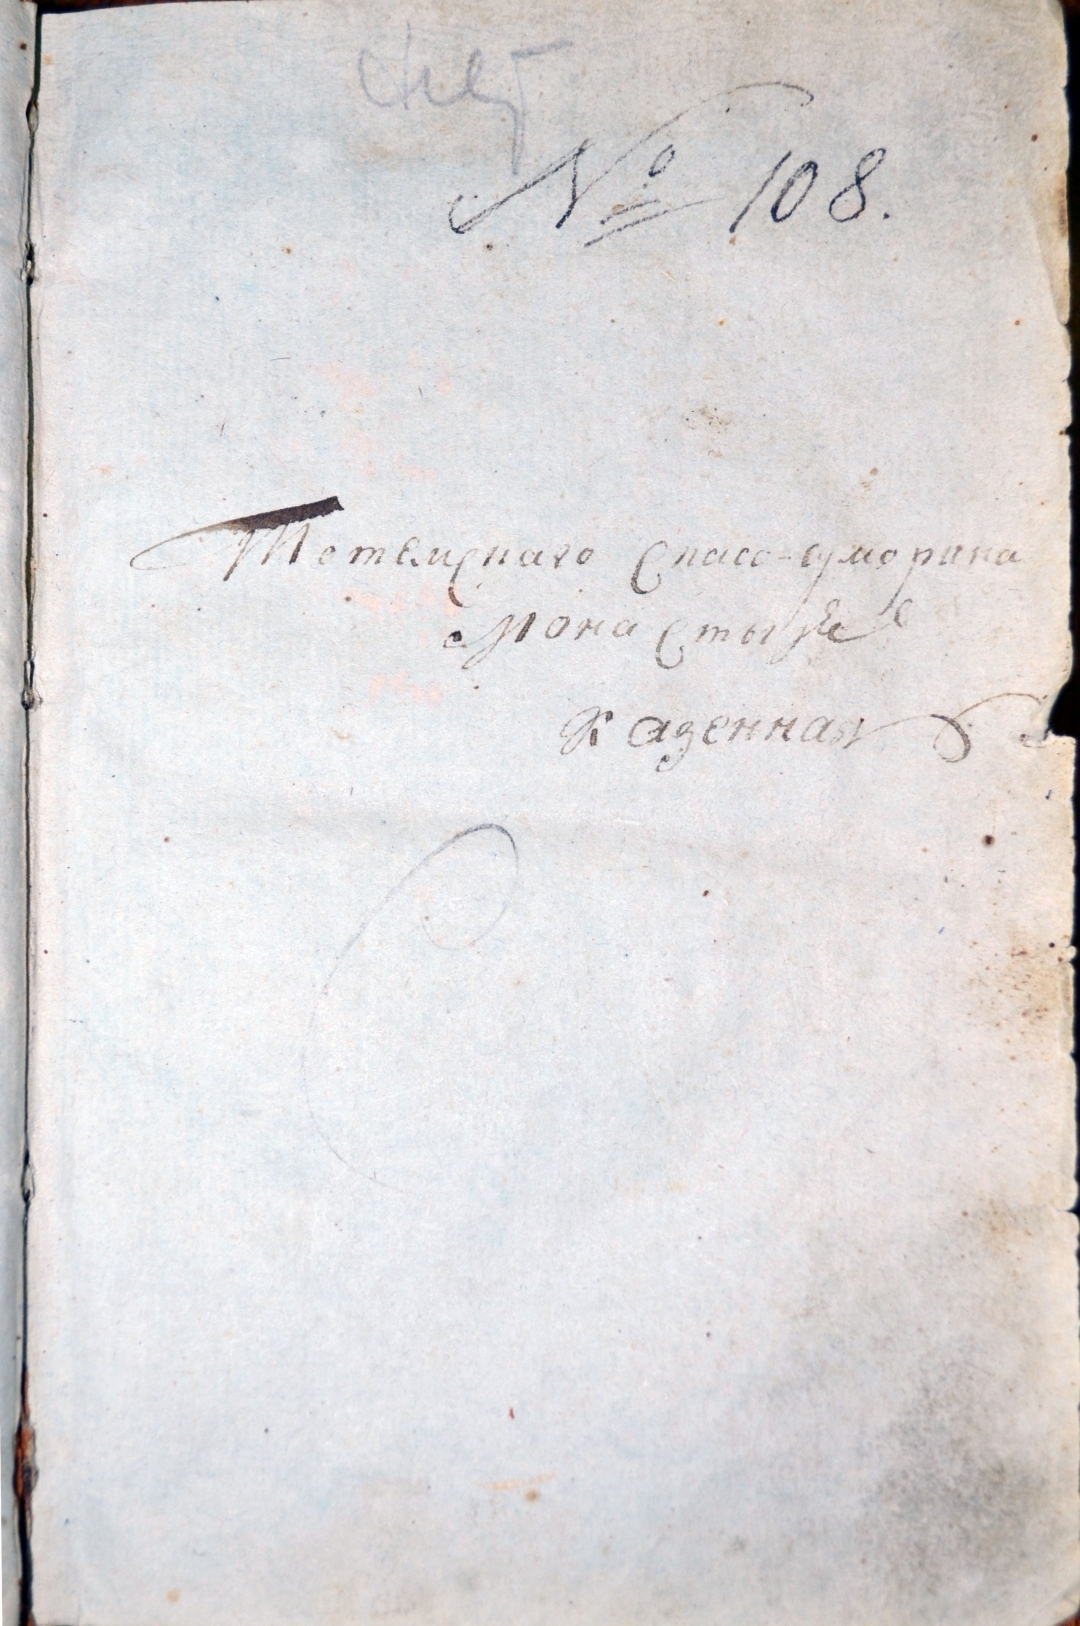 № 108.
Тотемскаго Спасо-суморина
Монастыря
Казенная